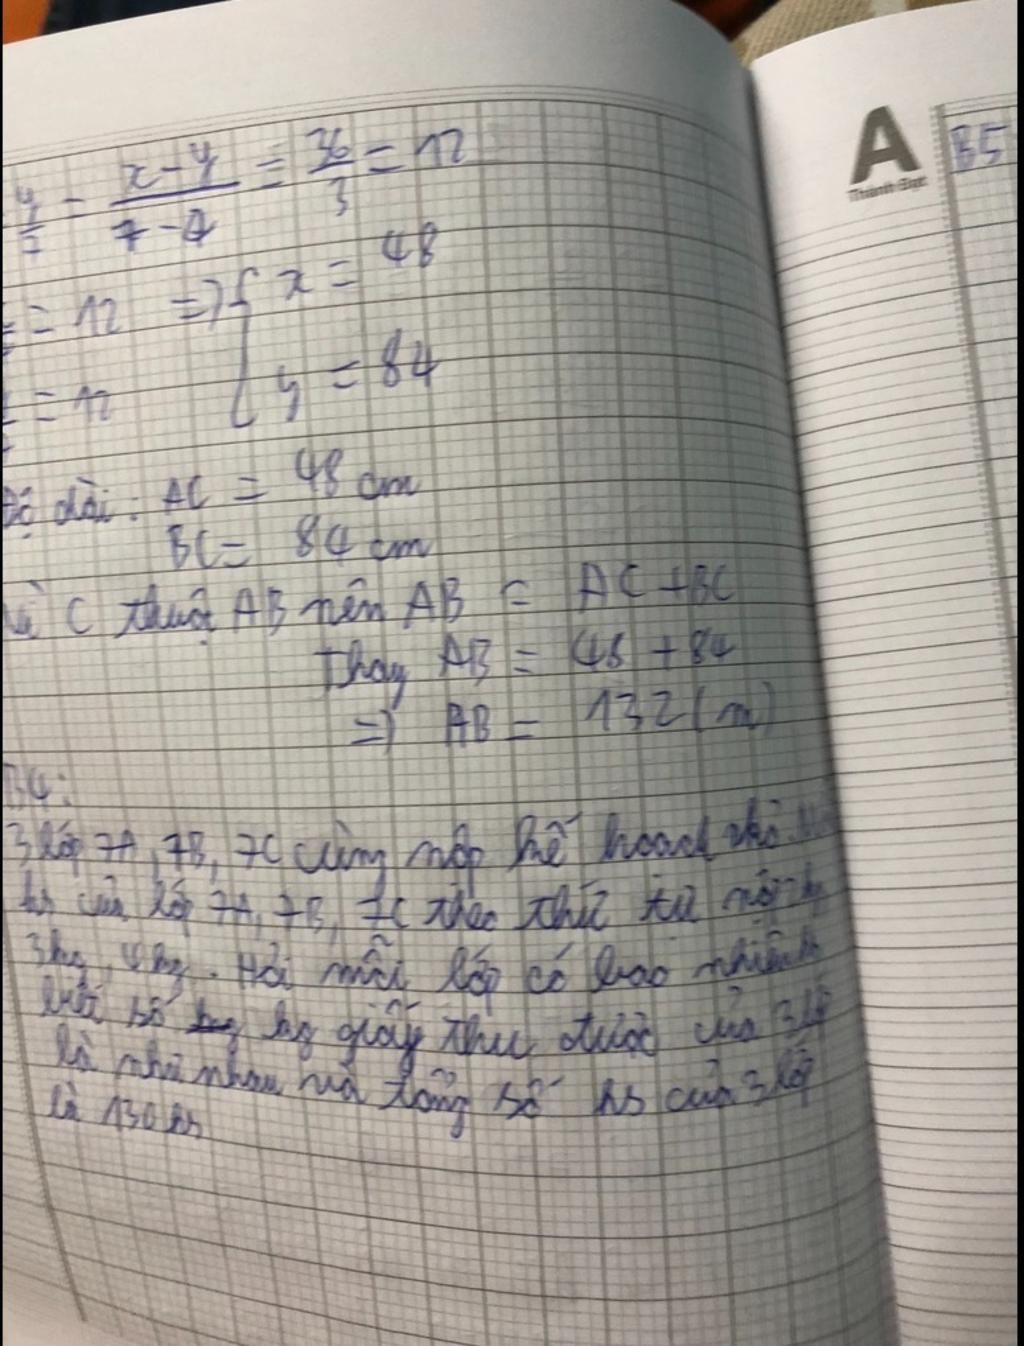 y = x - y / 7 - 4 = 36 / 3 = 12
= 12 => { x = 48
= 12 { y = 84
Độ dài: AC = 48 cm
BC = 84 cm
Vì C thuộc AB nên AB = AC + BC
Thay AB = 48 + 84
=> AB = 132 (m)
B4:
3 lớp 7A, 7B, 7C cùng nộp kế hoạch nhỏ.
hs của lớp 7A, 7B, 7C theo thứ tự nộp
3kg, 4kg. Hỏi mỗi lớp có bao nhiêu
biết số kg giấy thu được của 3 lớp
là như nhau và tổng số hs của 3 lớp
là 130 hs
A
Thành Đạt
B5